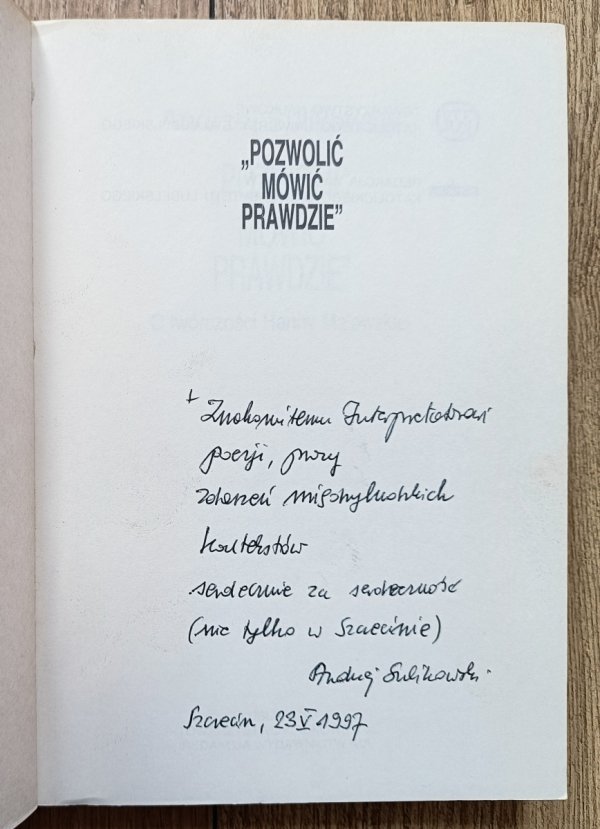 „POZWOLIĆ
MÓWIĆ
PRAWDZIE”
+ Znakomitemu Interpretatorowi
poezji, prozy
zdarzeń międzyludzkich
kontekstów
serdecznie za serdeczność
(nie tylko w Szczecinie)
Andrzej Sulikowski
Szczecin, 23 V 1997